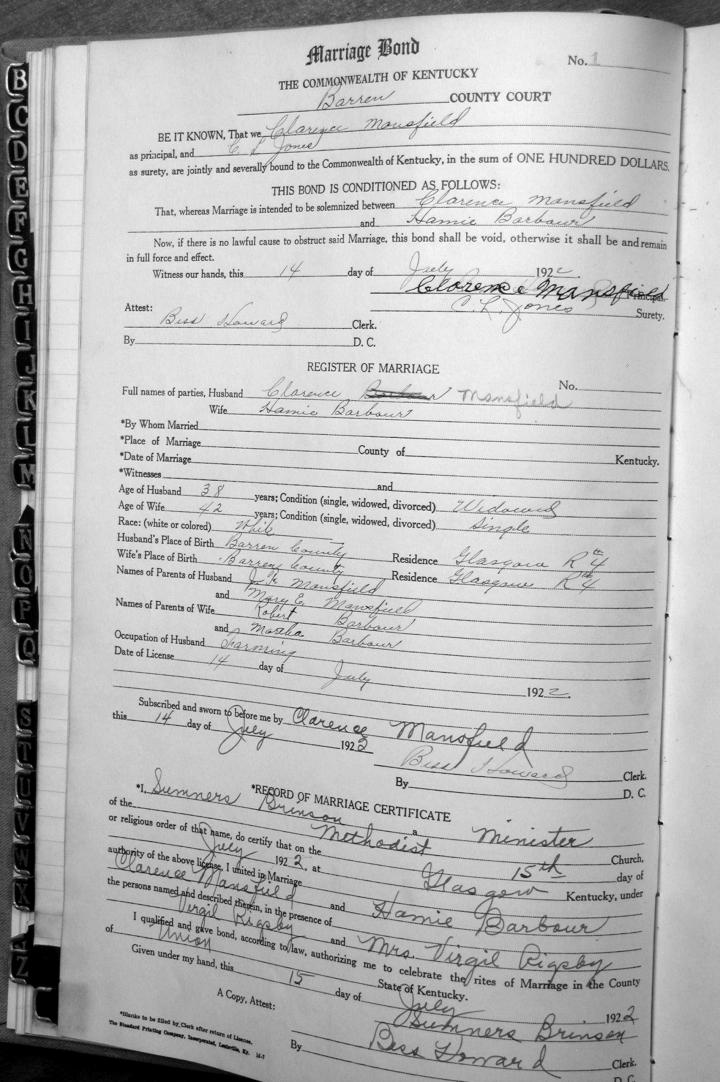 Marriage Bond
No. 1
THE COMMONWEALTH OF KENTUCKY
Barren COUNTY COURT
BE IT KNOWN, That we Clarence Mansfield
as principal, and C. L. Jones
as surety, are jointly and severally bound to the Commonwealth of Kentucky, in the sum of ONE HUNDRED DOLLARS.
THIS BOND IS CONDITIONED AS FOLLOWS:
That, whereas Marriage is intended to be solemnized between Clarence Mansfield
and Hamie Barbour
Now, if there is no lawful cause to obstruct said Marriage, this bond shall be void, otherwise it shall be and remain
in full force and effect.
Witness our hands, this 14 day of July 1922
Clarence Mansfield Principal.
C. L. Jones Surety.
Attest:
Bess Howard Clerk.
By D. C.
REGISTER OF MARRIAGE
No.
Full names of parties, Husband Clarence Barbour Mansfield
Wife Hamie Barbour
*By Whom Married
*Place of Marriage County of Kentucky.
*Date of Marriage
*Witnesses and
Age of Husband 38 years; Condition (single, widowed, divorced) Widowed
Age of Wife 42 years; Condition (single, widowed, divorced) Single
Race: (white or colored) White
Husband's Place of Birth Barren County Residence Glasgow R th 4
Wife's Place of Birth Barren County Residence Glasgow R th 4
Names of Parents of Husband Mansfield
and Mary E. Mansfield
Names of Parents of Wife Robert Barbour
and Martha Barbour
Occupation of Husband Farming
Date of License 14 day of July
1922.
Subscribed and sworn to before me by Clarence Mansfield
this 14 day of July 1923
Bess Howard Clerk.
By D. C.
*RECORD OF MARRIAGE CERTIFICATE
*I, Sumners Brinson a Minister
of the Methodist Church,
or religious order of that name, do certify that on the 15th day of
July 1922, at Glasgow Kentucky, under
authority of the above license, I united in Marriage
Clarence Mansfield and Hamie Barbour
the persons named and described therein, in the presence of
Virgil Rigsby and Mrs. Virgil Rigsby
I qualified and gave bond, according to law, authorizing me to celebrate the rites of Marriage in the County
of Union State of Kentucky.
Given under my hand, this 15 day of July 1922
Sumners Brinson
A Copy, Attest: Bess Howard Clerk.
By D. C.
*Blanks to be filled by Clerk after return of License.
The Standard Printing Company, Incorporated, Louisville, Ky.
B
C
D
E
F
G
H
I
J
K
L
M
N
O
P
Q
S
T
U
V
W
X
Z